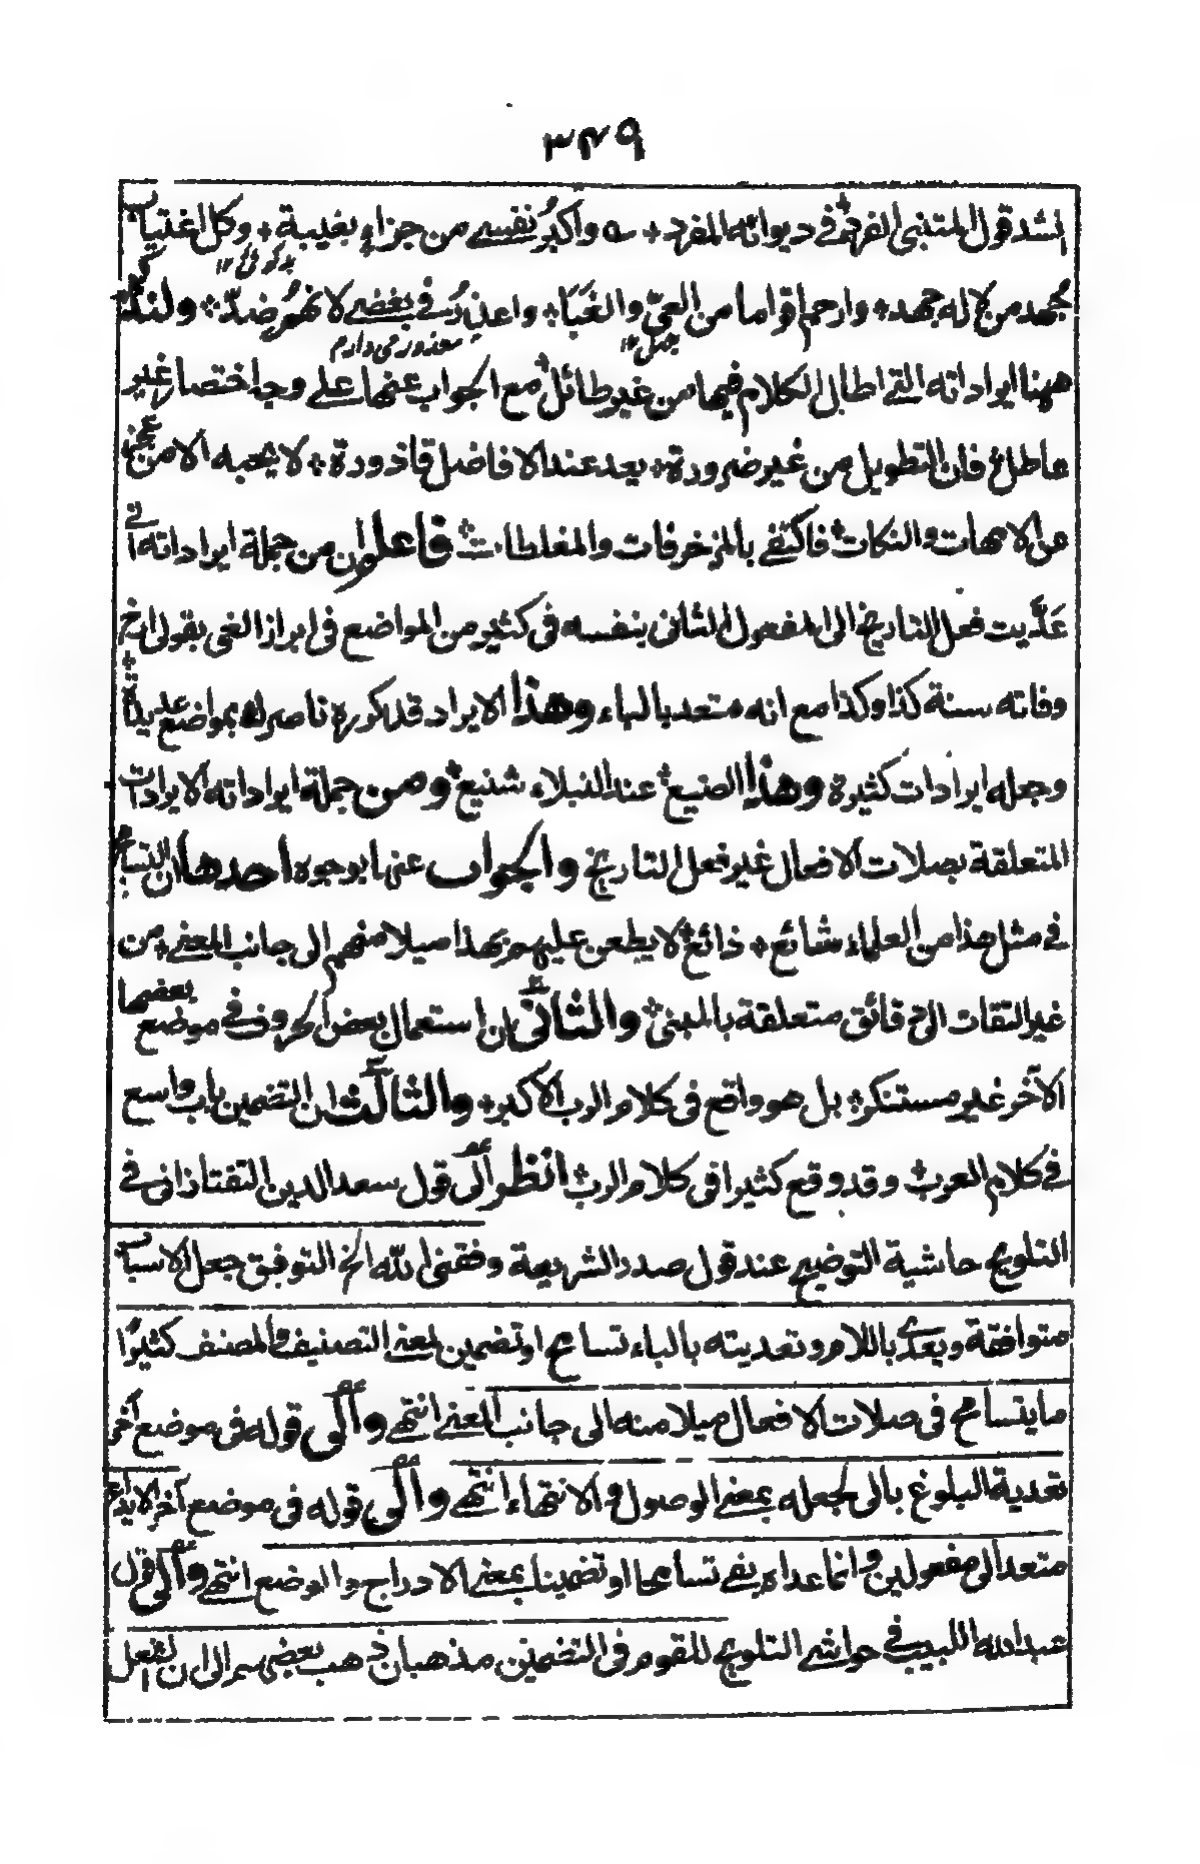 ٣٤٩
انشد قول المتنبى الفرد + فى ديوانه المفرد + ے واكبرُ نفسے من جزاءٍ بغيبة + وكل اغتياب
بدگوئی ١٢
جهد من لا له جهد + وارحم اقواما من العىّ والغَبَا + واعذِرُ فے بغضے لانهم ضدّ + ولنذكر
جہل ١٢ معذور می دارم
ههنا ايراداته التے اطال الكلام فيها من غير طائل + مع الجواب عنها علے وجه اختصار غير
عاطل + فان التطويل من غير ضرورة + يعد عند الافاضل قاذورة + لا يحبه الا من عجز
عن الامهات والنكات + فاكتفے بالمزخرفات والمغلطات + فاعلم ان من جملة ايراداته انے
عَدَّيت فعل التاريخ الى المفعول الثانى بنفسه فى كثير من المواضع فى ابراز الغى بقولى ارخ
وفاته سنة كذا وكذا مع انه متعد بالباء وهذا الايراد قد كوره ناصرك بمواضع عديدة +
وجعله ايرادات كثيرة وهذا الصنيع + عند النبلاء شنيع + ومن جملة ايراداته الايرادات
المتعلقة بصلات الافعال غير فعل التاريخ والجواب عنها بوجوه احدها ان التسامح
فے مثل هذا من العلماء شائع + ذائع + لا يطعن عليهم بهذا ميلا منهم الى جانب المعنے + من
غير التفات الى دقائق متعلقة بالمبنى + والثانى ان استعمال بعض الحروف فے موضع بعضها
الآخر غير مستنكر + بل هو واقع فى كلام الرب الاكبر + والثالث ان التضمين باب واسع
فے كلام العرب + وقد وقع كثيرا فى كلام الرب + انظر الى قول سعد الدين التفتازانى فے
التلويح حاشية التوضيح عند قول صدر الشريعة وفقنى الله الخ التوفيق جعل الاسباب
متوافقة ويعدے باللام وتعديته بالباء تسامح او تضمين لمعنے التصنيف والمصنف كثيرًا
ما يتسامح فى صلات الافعال ميلا منه الى جانب المعنے انتهے والى قوله فى موضع آخر
تعدية البلوغ بالى لجعله بمعنے الوصول والانتهاء انتهے والى قوله فى موضع آخر الايداع
متعد الى مفعولين وانما عداه بفے تسامحا او تضمينا بمعنے الادراج والوضع انتهے والى قول
عبد الله اللبيب فے حواشے التلويح للقوم فى التضمين مذهبان ذهب بعضهم الى ان الفعل